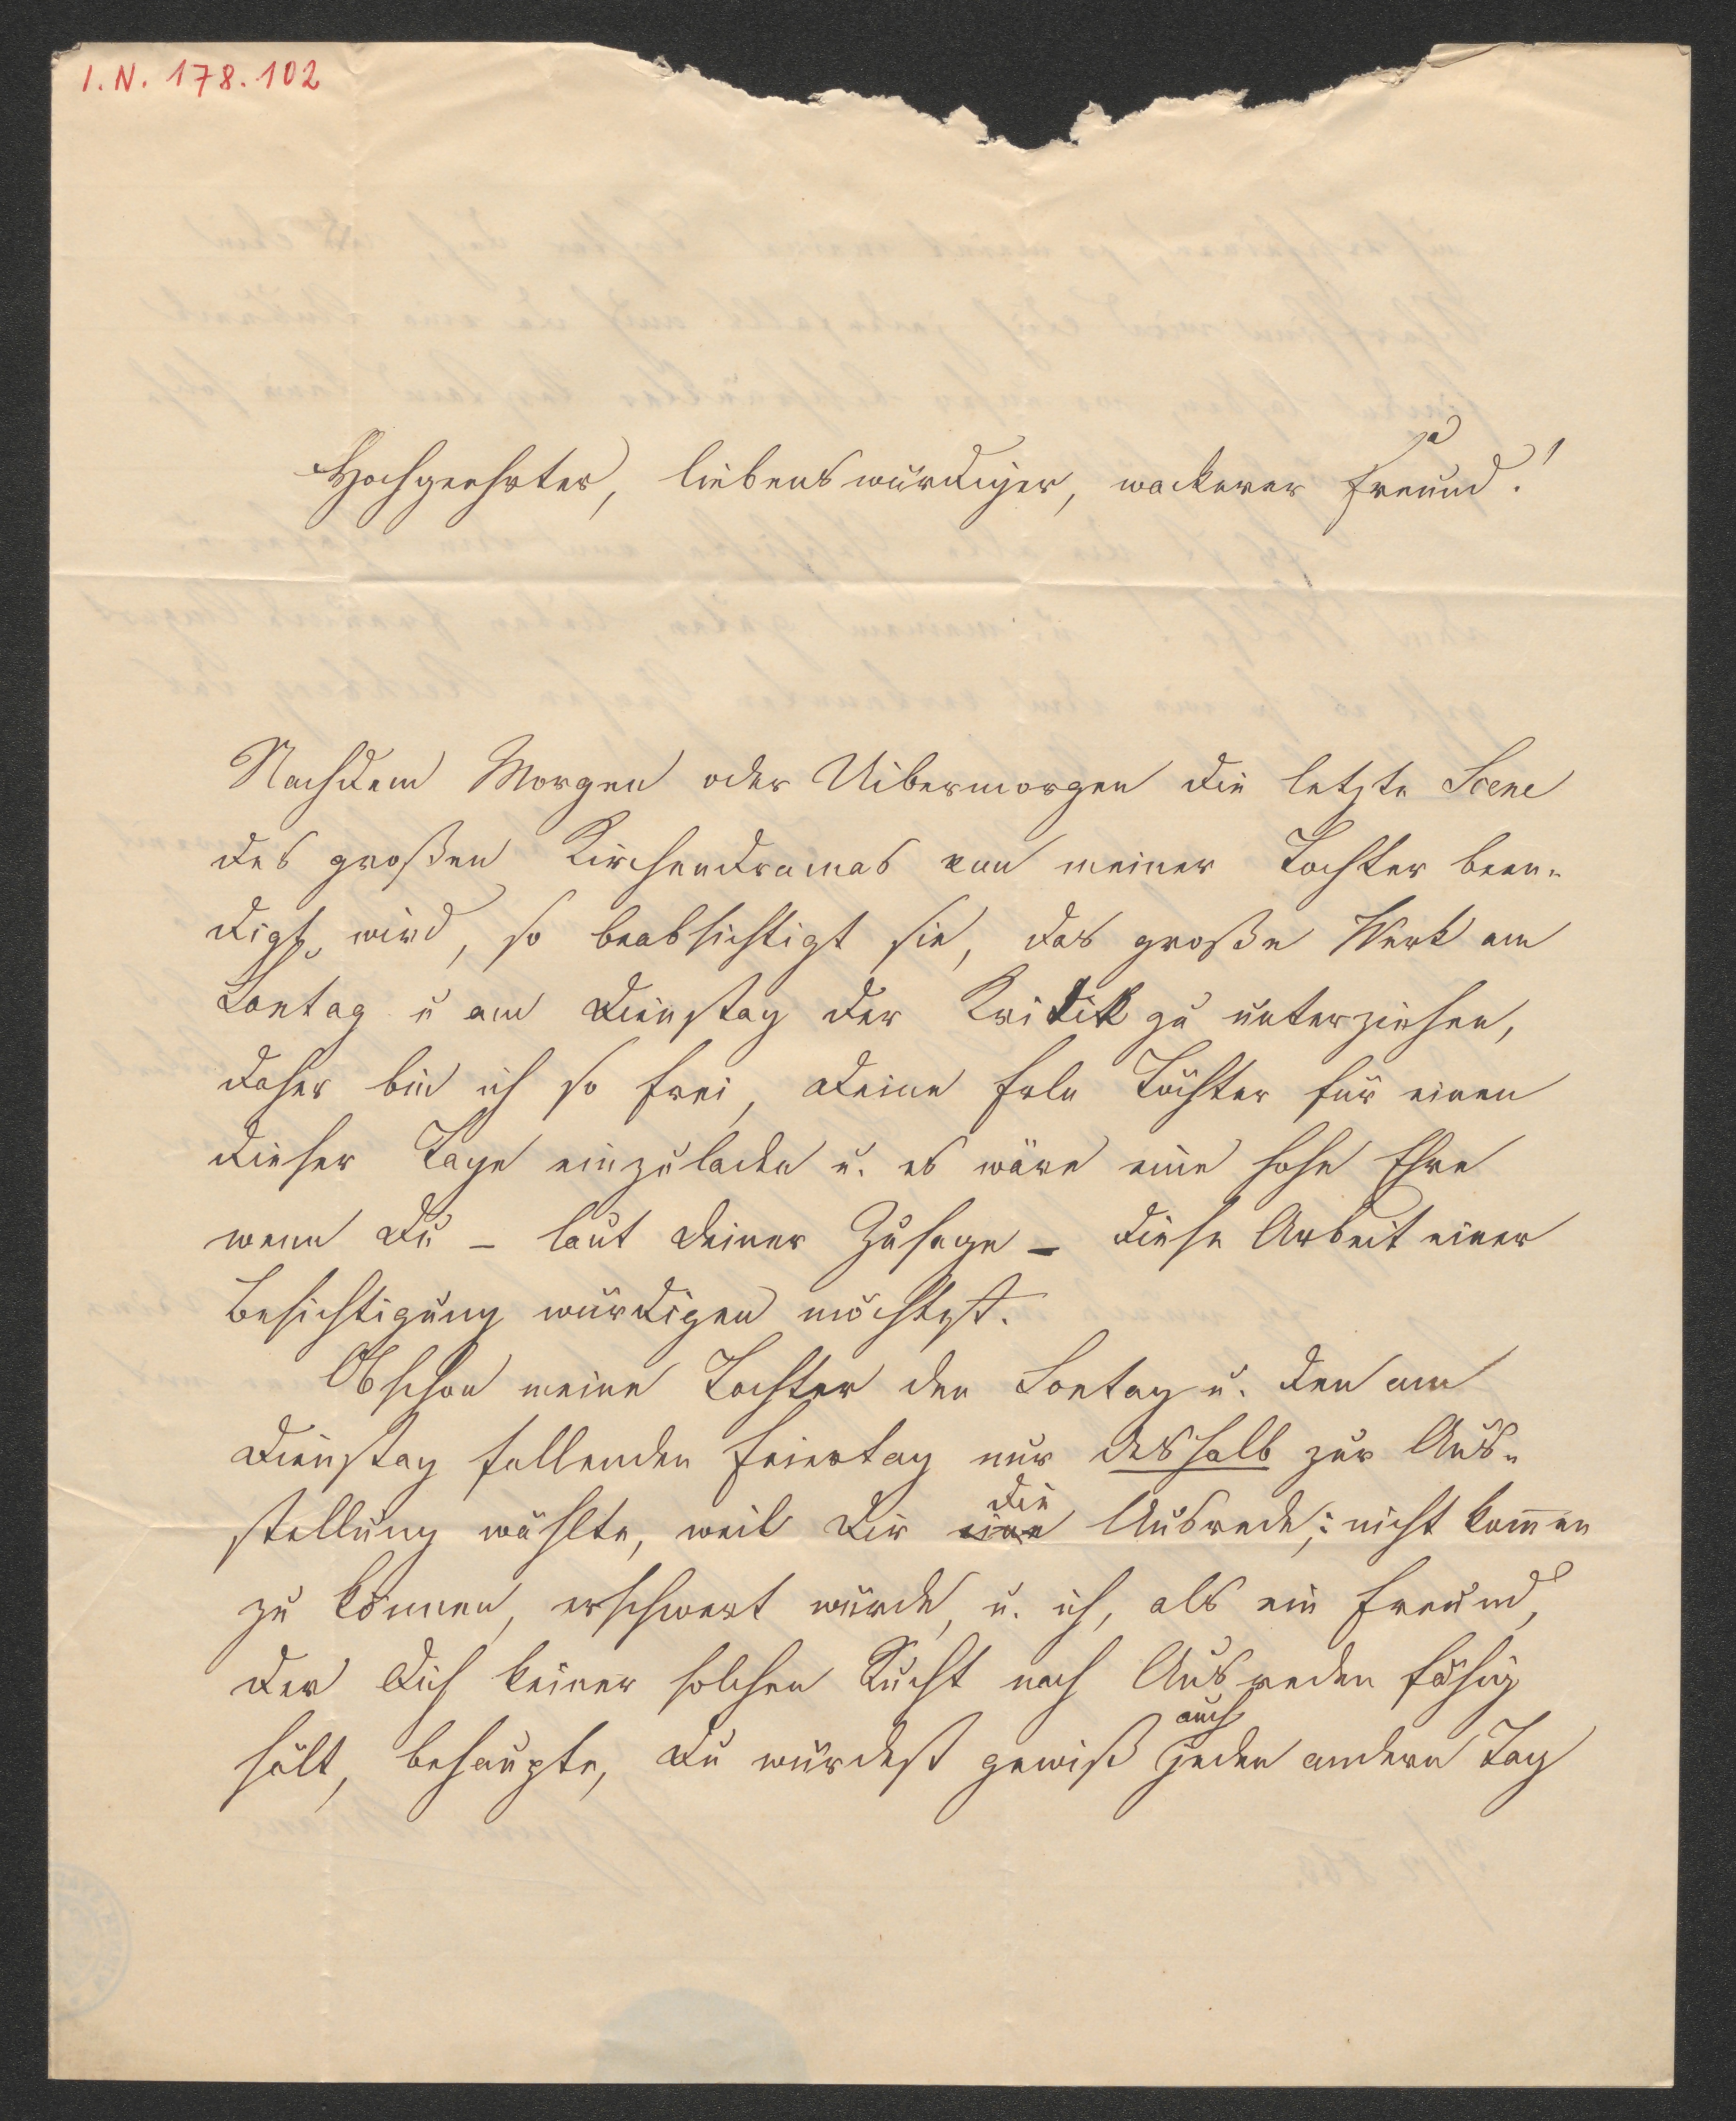 I.N. 178.102
Hochgeehrter, liebenswürdiger, wackerer Freund!
Nachdem Morgen oder Uibermorgen die letzte Scene
des großen Kirchendramas von meiner Tochter been-
digt wird, so beabsichtigt sie, das große Werk am
Sontag u am Dienstag der Kritik zu unterziehen,
daher bin ich so frei, Deine Frln Töchter für einen
dieser Tage einzuladen u. es wäre eine hohe Ehre
wenn Du – laut Deiner Zusage – diese Arbeit einer
Besichtigung würdigen möchtest.
Obschon meine Tochter den Sontag u. den am
Dienstag fallenden Feiertag nur deshalb zur Aus-
stellung wählte, weil Dir die Ausrede, nicht kom̅en
zu können, erschwert würde, u. ich, als ein Freund,
der Dich keiner solchen Sucht nach Ausreden fähig
hält, behaupte, Du würdest gewiß auch jeden andern Tag